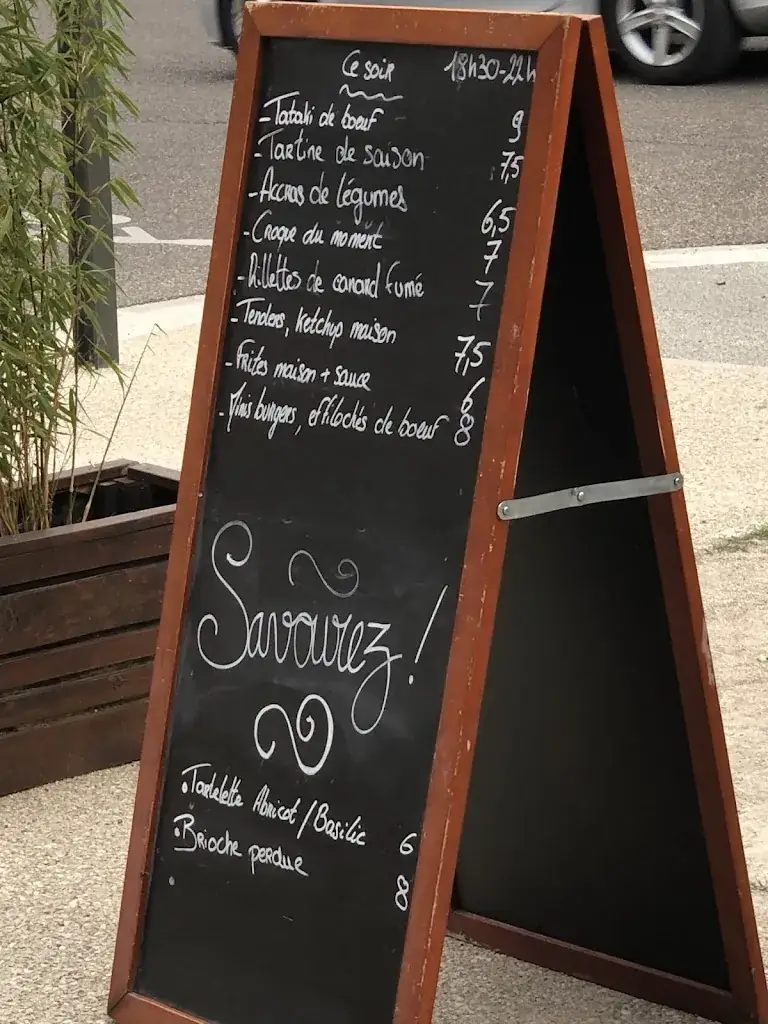 Ce soir 18h30-22h
-Tataki de bœuf 9
-Tartine de saison 7,5
-Accras de légumes 6,5
-Croque du moment 7
-Rillettes de canard fumé 7
-Tenders, ketchup maison 7,5
-Frites maison + sauce 6
-Minis burgers, effilochés de boeuf 8
Savourez !
•Tartelette Abricot/Basilic 6
•Brioche perdue 8
•